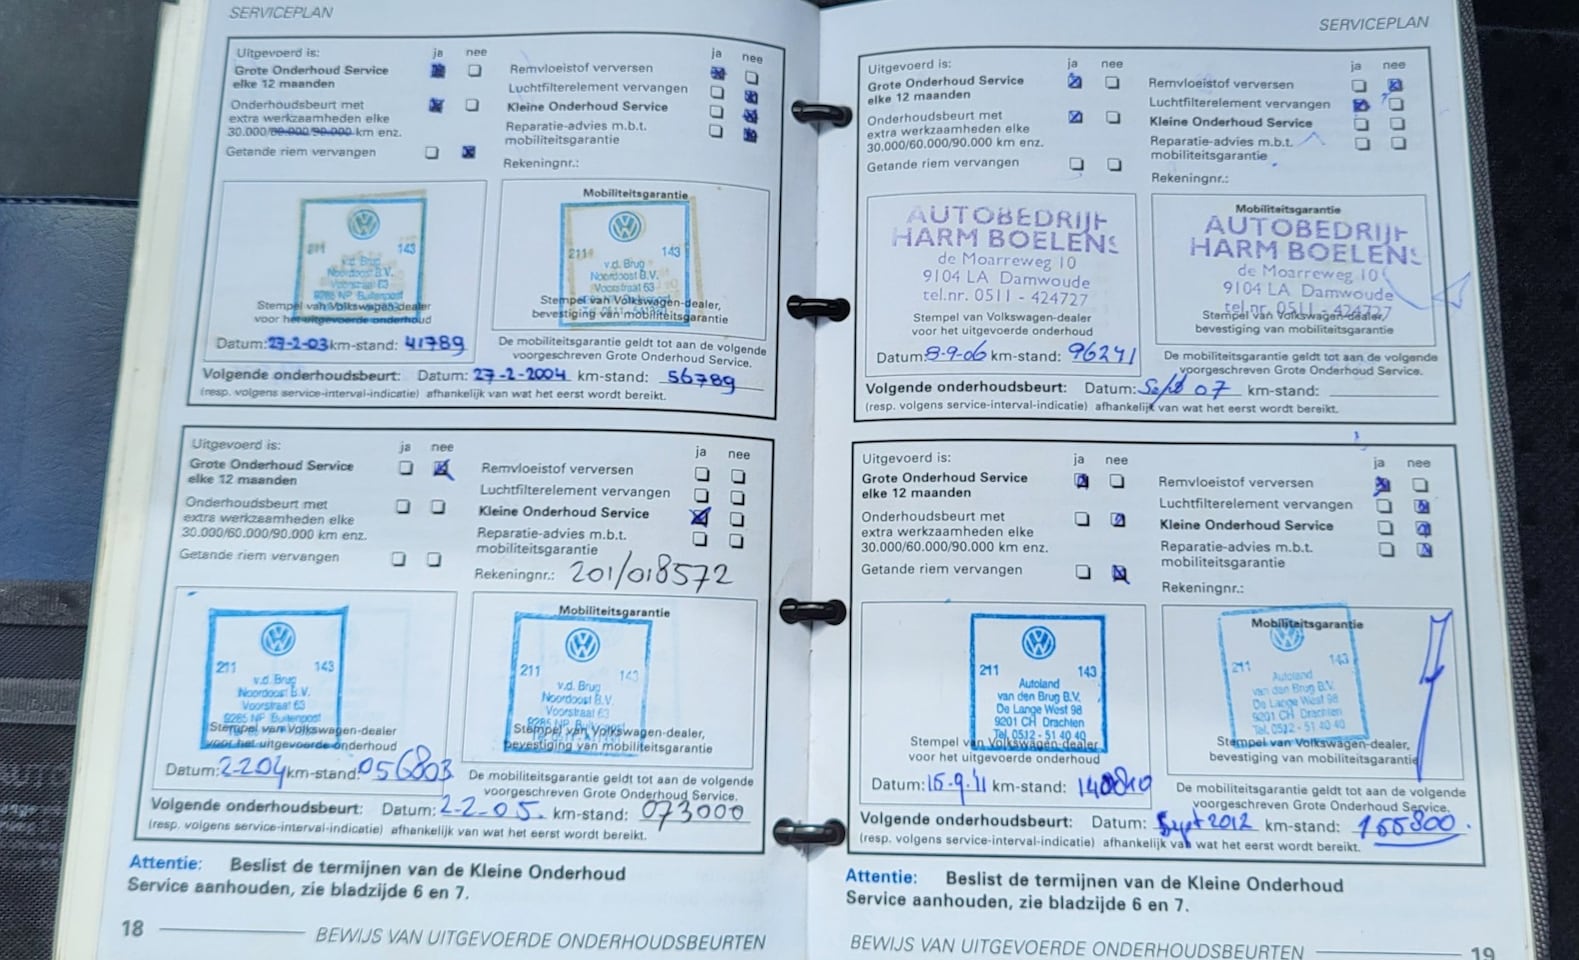 SERVICEPLAN
Uitgevoerd is: ja nee
Grote Onderhoud Service
elke 12 maanden
Onderhoudsbeurt met
extra werkzaamheden elke
30.000/60.000/90.000 km enz.
Getande riem vervangen
ja nee
Remvloeistof verversen
Luchtfilterelement vervangen
Kleine Onderhoud Service
Reparatie-advies m.b.t.
mobiliteitsgarantie
Rekeningnr.:
211 143
v.d. Brug
Noordoost B.V.
Voorstraat 63
9285 NP Buitenpost
Stempel van Volkswagen-dealer
voor het uitgevoerde onderhoud
Datum: 27-2-03 km-stand: 41789
Mobiliteitsgarantie
211 143
v.d. Brug
Noordoost B.V.
Voorstraat 63
Stempel van Volkswagen-dealer,
bevestiging van mobiliteitsgarantie
De mobiliteitsgarantie geldt tot aan de volgende
voorgeschreven Grote Onderhoud Service.
Volgende onderhoudsbeurt: Datum: 27-2-2004 km-stand: 56789
(resp. volgens service-interval-indicatie) afhankelijk van wat het eerst wordt bereikt.
Uitgevoerd is: ja nee
Grote Onderhoud Service
elke 12 maanden
Onderhoudsbeurt met
extra werkzaamheden elke
30.000/60.000/90.000 km enz.
Getande riem vervangen
ja nee
Remvloeistof verversen
Luchtfilterelement vervangen
Kleine Onderhoud Service
Reparatie-advies m.b.t.
mobiliteitsgarantie
Rekeningnr.: 201/018572
211 143
v.d. Brug
Noordoost B.V.
Voorstraat 63
9285 NP Buitenpost
Stempel van Volkswagen-dealer
voor het uitgevoerde onderhoud
Datum: 2-204 km-stand: 056803
Mobiliteitsgarantie
211 143
v.d. Brug
Noordoost B.V.
Voorstraat 63
9285 NP Buitenpost
Stempel van Volkswagen-dealer,
bevestiging van mobiliteitsgarantie
De mobiliteitsgarantie geldt tot aan de volgende
voorgeschreven Grote Onderhoud Service.
Volgende onderhoudsbeurt: Datum: 2-2-05. km-stand: 073000
(resp. volgens service-interval-indicatie) afhankelijk van wat het eerst wordt bereikt.
Attentie: Beslist de termijnen van de Kleine Onderhoud
Service aanhouden, zie bladzijde 6 en 7.
18 BEWIJS VAN UITGEVOERDE ONDERHOUDSBEURTEN
SERVICEPLAN
Uitgevoerd is: ja nee
Grote Onderhoud Service
elke 12 maanden
Onderhoudsbeurt met
extra werkzaamheden elke
30.000/60.000/90.000 km enz.
Getande riem vervangen
ja nee
Remvloeistof verversen
Luchtfilterelement vervangen
Kleine Onderhoud Service
Reparatie-advies m.b.t.
mobiliteitsgarantie
Rekeningnr.:
AUTOBEDRIJF
HARM BOELENS
de Moarreweg 10
9104 LA Damwoude
tel.nr. 0511 - 424727
Stempel van Volkswagen-dealer
voor het uitgevoerde onderhoud
Datum: 8-9-06 km-stand: 96241
Mobiliteitsgarantie
AUTOBEDRIJF
HARM BOELENS
de Moarreweg 10
9104 LA Damwoude
tel.nr. 0511 - 424727
Stempel van Volkswagen-dealer,
bevestiging van mobiliteitsgarantie
De mobiliteitsgarantie geldt tot aan de volgende
voorgeschreven Grote Onderhoud Service.
Volgende onderhoudsbeurt: Datum: 07 km-stand:
(resp. volgens service-interval-indicatie) afhankelijk van wat het eerst wordt bereikt.
Uitgevoerd is: ja nee
Grote Onderhoud Service
elke 12 maanden
Onderhoudsbeurt met
extra werkzaamheden elke
30.000/60.000/90.000 km enz.
Getande riem vervangen
ja nee
Remvloeistof verversen
Luchtfilterelement vervangen
Kleine Onderhoud Service
Reparatie-advies m.b.t.
mobiliteitsgarantie
Rekeningnr.:
211 143
Autoland
van den Brug B.V.
De Lange West 98
9201 CH Drachten
Tel. 0512 - 51 40 40
Stempel van Volkswagen-dealer
voor het uitgevoerde onderhoud
Datum: 15-9-'11 km-stand: 140840
Mobiliteitsgarantie
211 143
Autoland
van den Brug B.V.
De Lange West 98
9201 CH Drachten
Tel. 0512 - 51 40 40
Stempel van Volkswagen-dealer,
bevestiging van mobiliteitsgarantie
De mobiliteitsgarantie geldt tot aan de volgende
voorgeschreven Grote Onderhoud Service.
Volgende onderhoudsbeurt: Datum: Sept 2012 km-stand: 155800.
(resp. volgens service-interval-indicatie) afhankelijk van wat het eerst wordt bereikt.
Attentie: Beslist de termijnen van de Kleine Onderhoud
Service aanhouden, zie bladzijde 6 en 7.
BEWIJS VAN UITGEVOERDE ONDERHOUDSBEURTEN 19